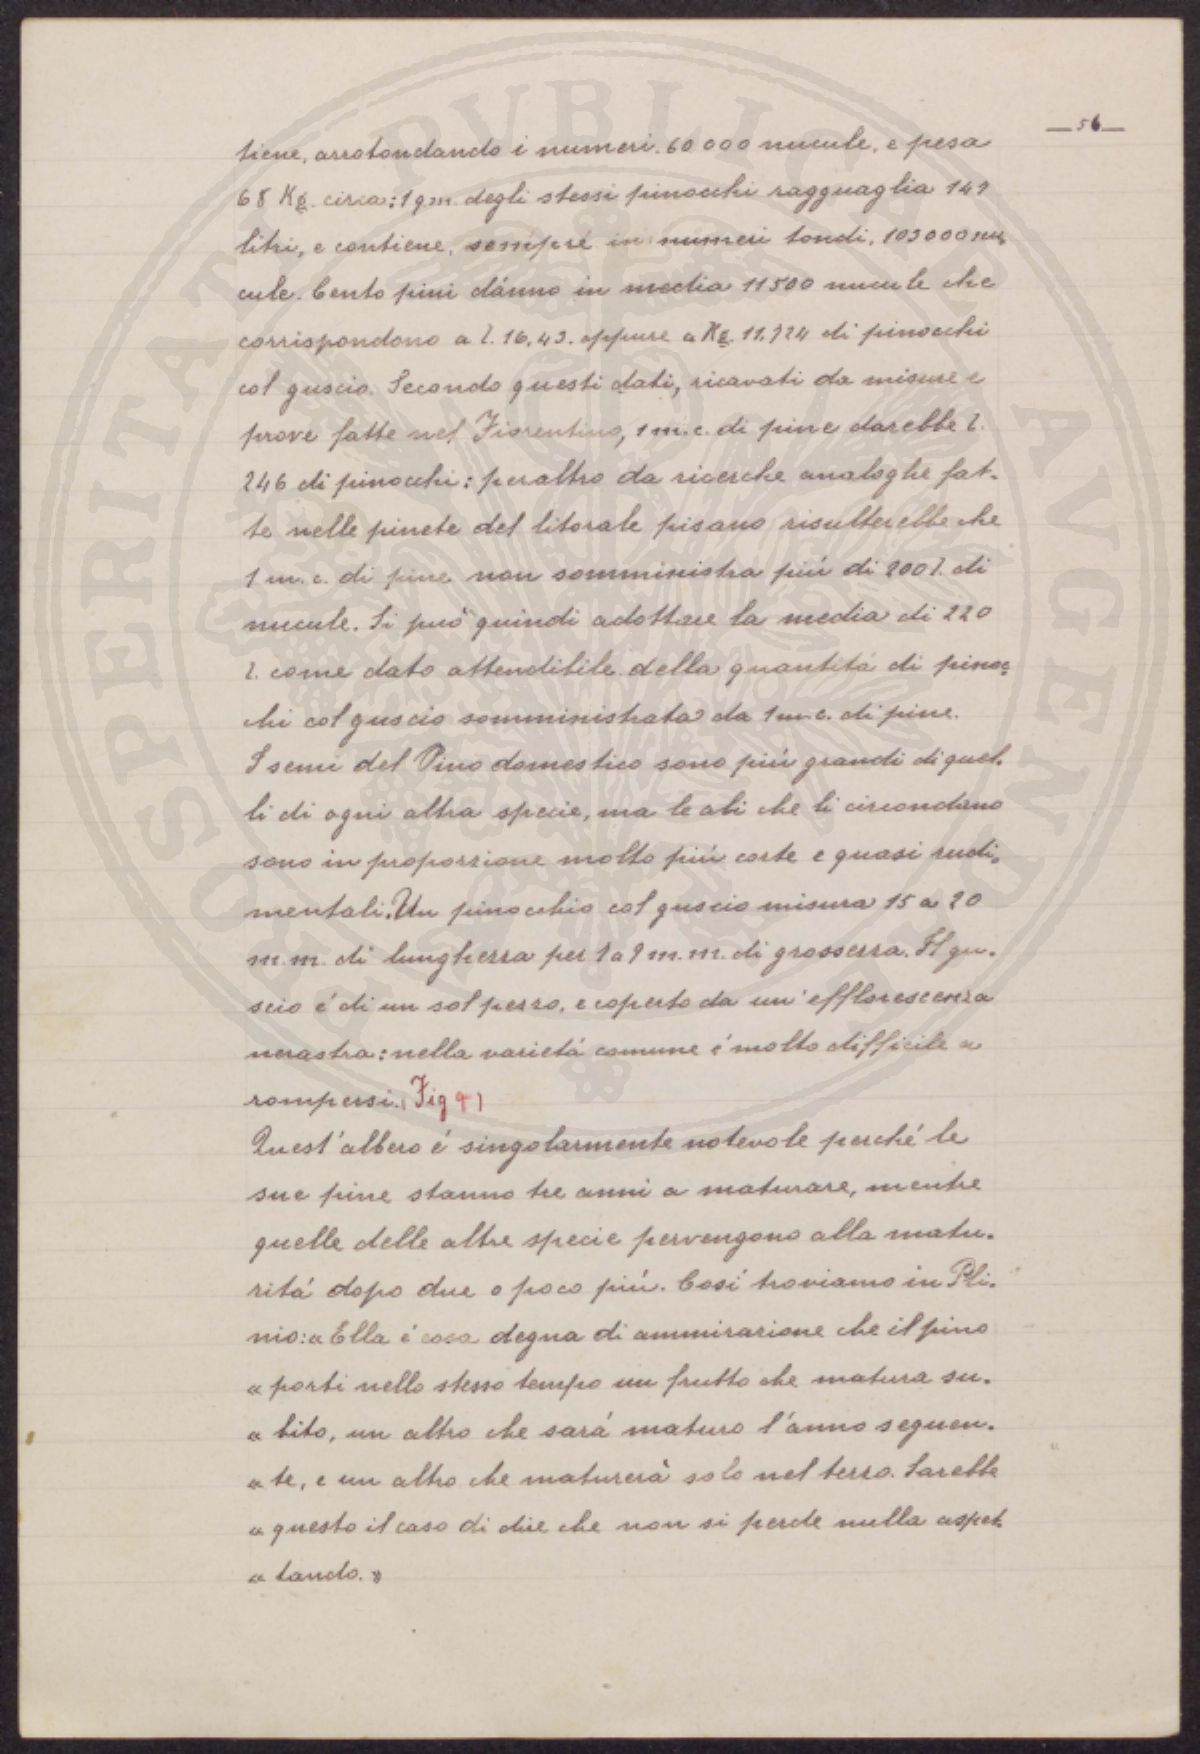 — 56 —
tiene, arrotondando i numeri. 60000 nucule, e pesa
68 Kg. circa: 1 qm. degli stessi pinocchi ragguaglia 149
litri, e contiene, sempre in numeri tondi, 103000 nu-
cule. Cento pini dánno in media 11500 nucule che
corrispondono a l. 16,43. oppure a Kg. 11.724 di pinocchi
col guscio. Secondo questi dati, ricavati da misure e
prove fatte nel Fiorentino, 1 m.c. di pine darebbe l.
246 di pinocchi: peraltro da ricerche analoghe fat-
te nelle pinete del litorale pisano risulterebbe che
1 m.c. di pine non somministra piú di 200 l. di
nucule. Si può quindi adottare la media di 220
l. come dato attendibile della quantitá di pinoc-
chi col guscio somministrata da 1 m.c. di pine.
I semi del Pino domestico sono piú grandi di quel-
li di ogni altra specie, ma le ali che li circondano
sono in proporzione molto piú corte e quasi rudi-
mentali. Un pinocchio col guscio misura 15 a 20
m.m. di lunghezza per 7 a 9 m.m. di grossezza. Il gu-
scio é di un sol pezzo, e coperto da un' efflorescenza
nerastra: nella varietá comune é molto difficile a
rompersi. (Fig 9)
Quest'albero é singolarmente notevole perché le
sue pine stanno tre anni a maturare, mentre
quelle delle altre specie pervengono alla matu-
ritá dopo due o poco piú. Cosí troviamo in Pli-
nio: « Ella é cosa degna di ammirazione che il pino
« porti nello stesso tempo un frutto che matura su-
« bito, un altro che sará maturo l'anno seguen-
« te, e un altro che maturerà solo nel terzo. Sarebbe
« questo il caso di dire che non si perde nulla aspet-
« tando. »
PROSPERITATI PVBLICAE AVGENDAE